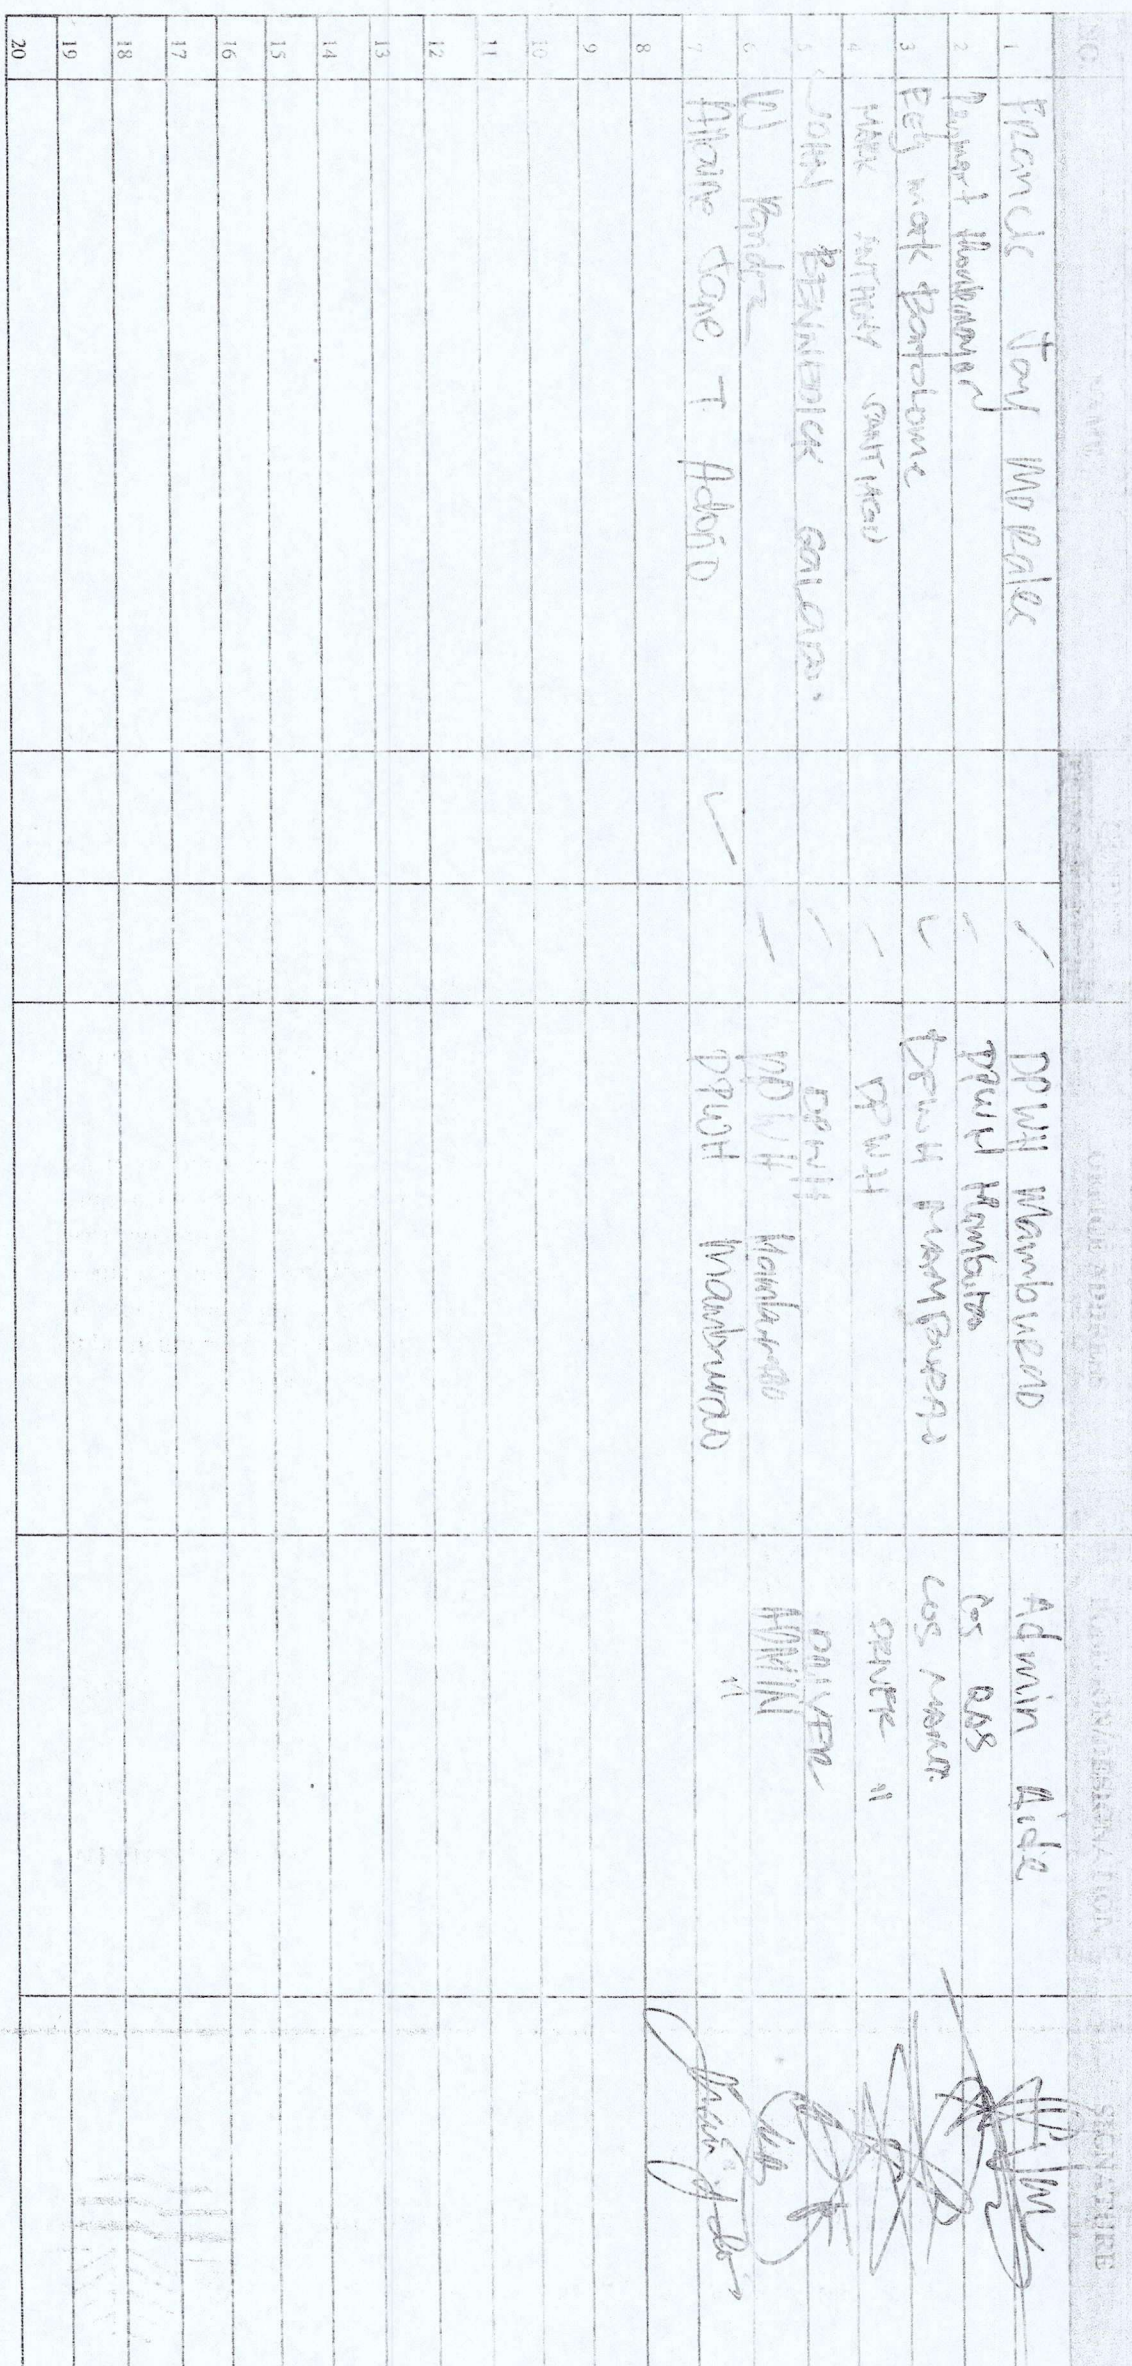 NO. NAME OFFICE ADDRESS POSITION/DESIGNATION SIGNATURE
1 Francis Jay Morales DPWH Mamburao Admin Aide
2 DPWH Mamburao COS
3 Edy mark Bartolome DPWH MAMBURAO COS MAINT.
4 MARK ANTHONY SANTIAGO DPWH DRIVER II
5 JOHN BENNEDICK DPWH DRIVER
6 DPWH Mamburao ADMIN
7 Allaine Jane T. Adorio DPWH Mamburao "
8
9
10
11
12
13
14
15
16
17
18
19
20